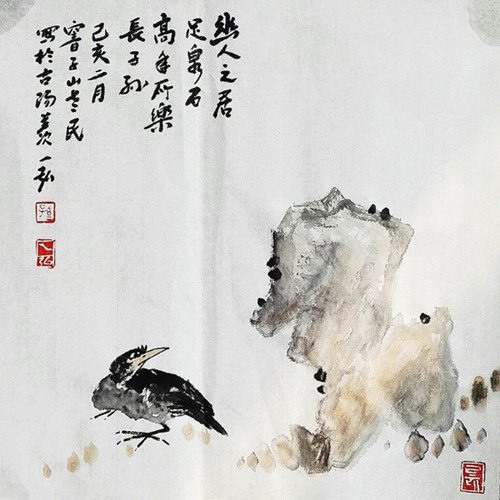 幽人之居
足泉石
高年所樂
長子孫
己亥二月
窨子山老民
寫於古陽羨 一弘